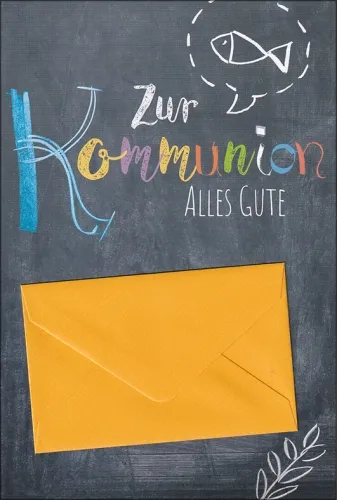 Zur
Kommunion
ALLES GUTE